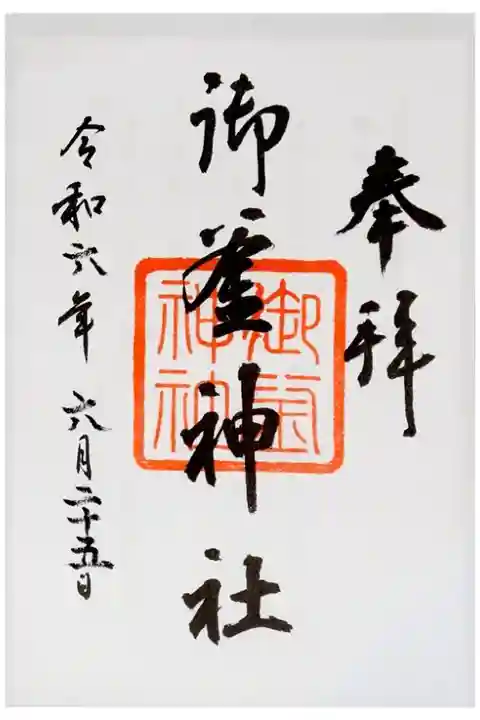 奉拝
御釜神社
御釜神社
令和六年六月二十五日